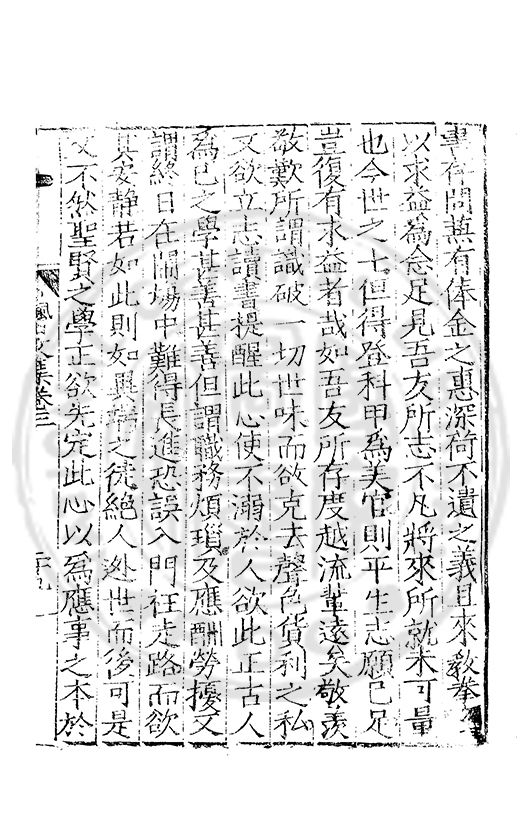 書存問兼有俸金之惠深荷不遺之義且來教拳〻
以求益為念足見吾友所志不凡將來所就未可量
也今世之士但得登科甲為美官則平生志願已足
豈復有求益者哉如吾友所存度越流輩遠矣敬羡
敬歎所謂識破一切世味而欲克去聲色貨利之私
又欲立志讀書提醒此心使不溺於人欲此正古人
為己之學甚善甚善但謂職務煩瑣及應酬勞擾又
謂終日在鬧場中難得長進恐誤入門枉走路而欲
其安靜若如此則如異端之徒絕人逃世而後可是
又不然聖賢之學正欲先定此心以為應事之本於
楓山文集卷三